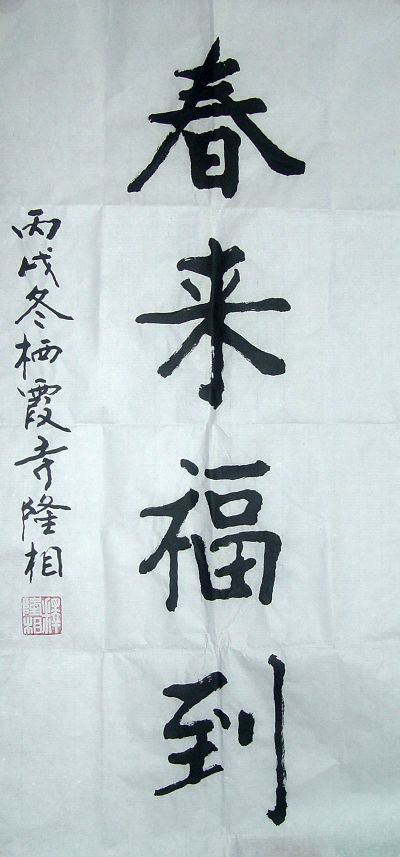 春来福到
丙戌冬栖霞寺隆相